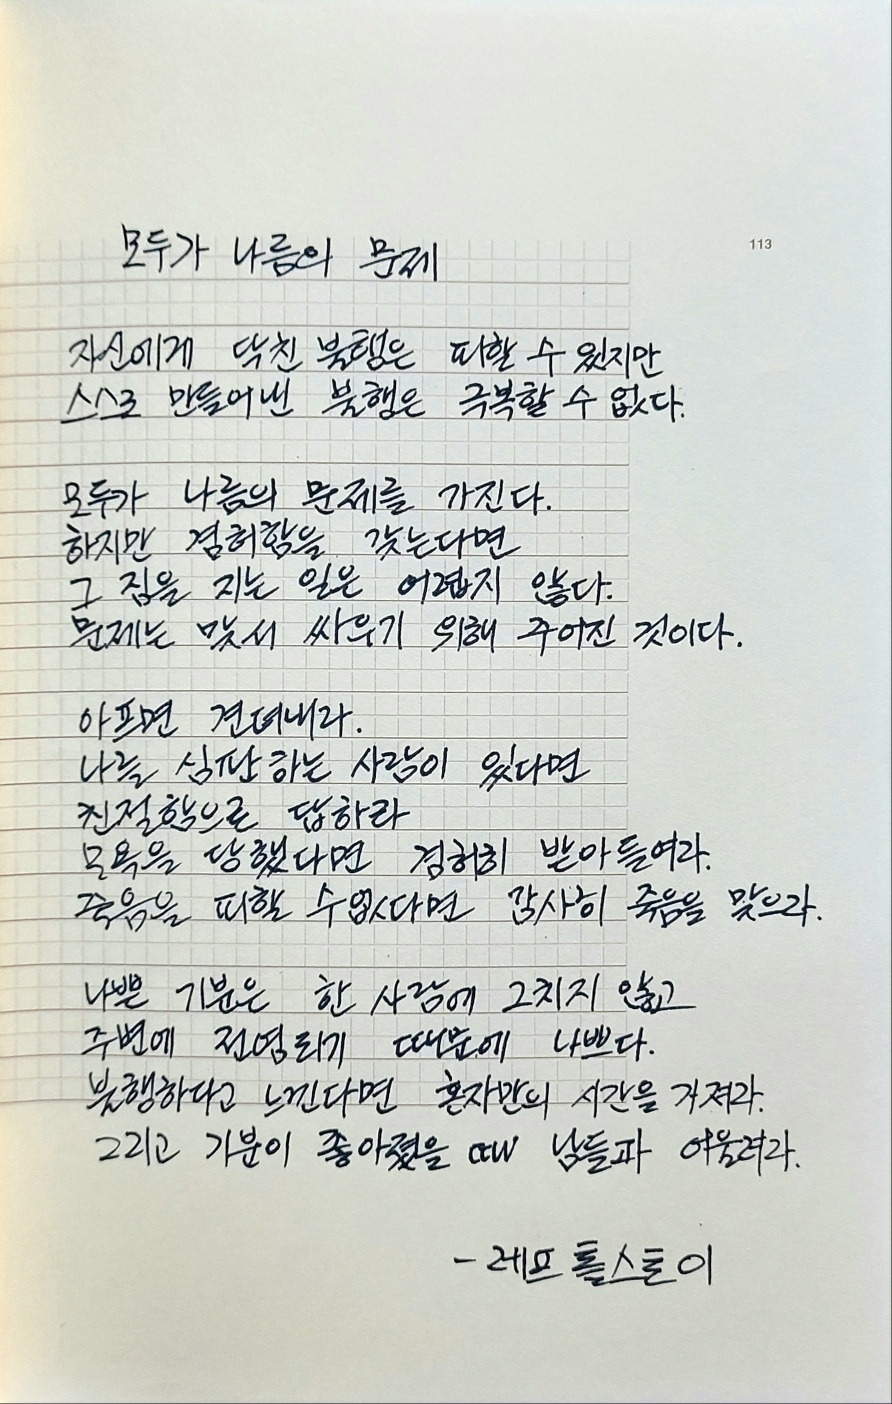 모두가 나름의 문제
113
자신에게 닥친 불행은 피할 수 있지만
스스로 만들어낸 불행은 극복할 수 없다.
모두가 나름의 문제를 가진다.
하지만 겸허함을 갖는다면
그 짐을 지는 일은 어렵지 않다.
문제는 맞서 싸우기 위해 주어진 것이다.
아프면 견뎌내라.
나를 심판하는 사람이 있다면
친절함으로 답하라
모욕을 당했다면 겸허히 받아들여라.
죽음을 피할 수없다면 감사히 죽음을 맞으라.
나쁜 기분은 한 사람에 그치지 않고
주변에 전염되기 때문에 나쁘다.
불행하다고 느낀다면 혼자만의 시간을 가져라.
그리고 기분이 좋아졌을 때 남들과 어울려라.
- 레프 톨스토이